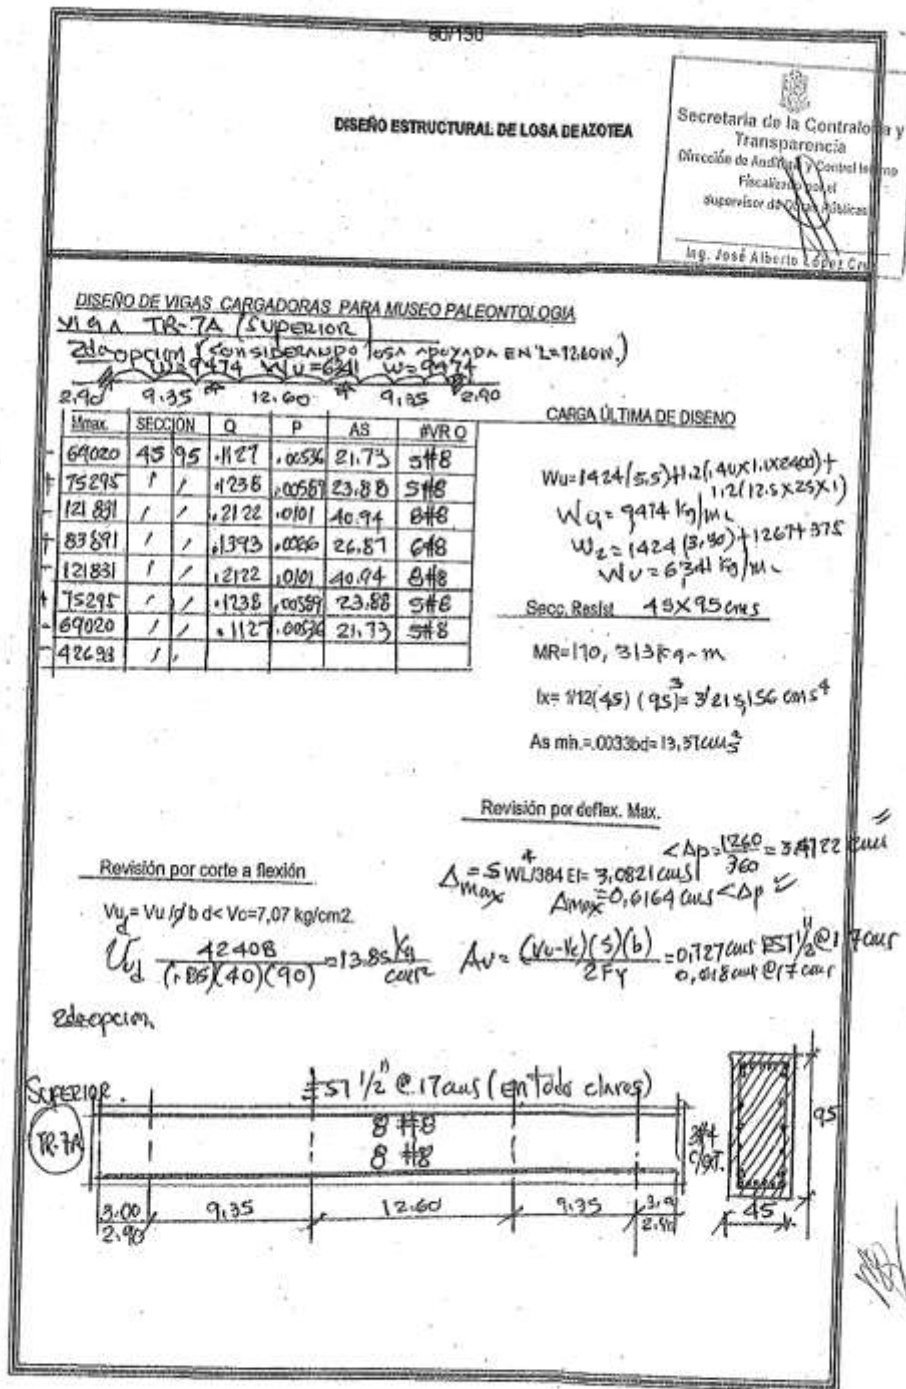 80/130
DISEÑO ESTRUCTURAL DE LOSA DE AZOTEA
Secretaría de la Contraloría y
Transparencia
Dirección de Auditoría y Control Interno
Fiscalizado por el
Supervisor de Obras Públicas
Ing. José Alberto López Cruz
DISEÑO DE VIGAS CARGADORAS PARA MUSEO PALEONTOLOGIA
VIGA TR-7A (SUPERIOR)
2da opcion (CONSIDERANDO losa APOYADA EN L=12.60M.)
W=9474 WU=6341 W=9474
2.90 9.35 12.60 9.35 2.90
Mmax. SECCION Q P AS #VR O
- 69020 45 95 .1127 .00536 21.73 5#8
+ 75295 / / .1238 .00589 23.88 5#8
- 121831 / / .2122 .0101 40.94 8#8
+ 83891 / / .1393 .0066 26.87 6#8
- 121831 / / .2122 .0101 40.94 8#8
+ 75295 / / .1238 .00589 23.88 5#8
- 69020 / / .1127 .00536 21.73 5#8
- 42693 / /
CARGA ÚLTIMA DE DISENO
Wu=1424(5.5)+1.2(.40x1.1x2400)+
1.2(12.5x25x1)
Wu=9474 kg/mL
W2=1424(3.30)+1267+375
WU=6341 kg/mL
Secc. Resist 45X95 cms
MR=170,313kg-m
Ix= 1/12(45) (95)³= 3'215,156 cms⁴
As min.=.0033bd=13,37cms²
Revisión por deflex. Max.
<Δp=1260/360=3.4722 cms
Δmax=5 WL⁴/384 EI= 3,0821cms
Δmax=0,6164 cms<Δp ✓
Revisión por corte a flexión
Vud= Vu /∅ b d< Vc=7,07 kg/cm2.
Vud 42408/(.85)(40)(90)=13.85 kg/cm²
Av= (Vu-Vc)(S)(b)/2Fy=0,727cms EST 1/2"@17cms
0,618cms @17 cms
2da opcion.
SUPERIOR.
EST 1/2" @ 17cms (en todo claros)
TR-7A
8 #8
8 #8
3#4
95
45
3.00 9.35 12.60 9.35
2.90